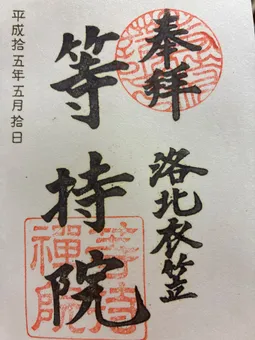 奉拝
洛北衣笠
等持院
平成拾五年五月拾日
等持禅師